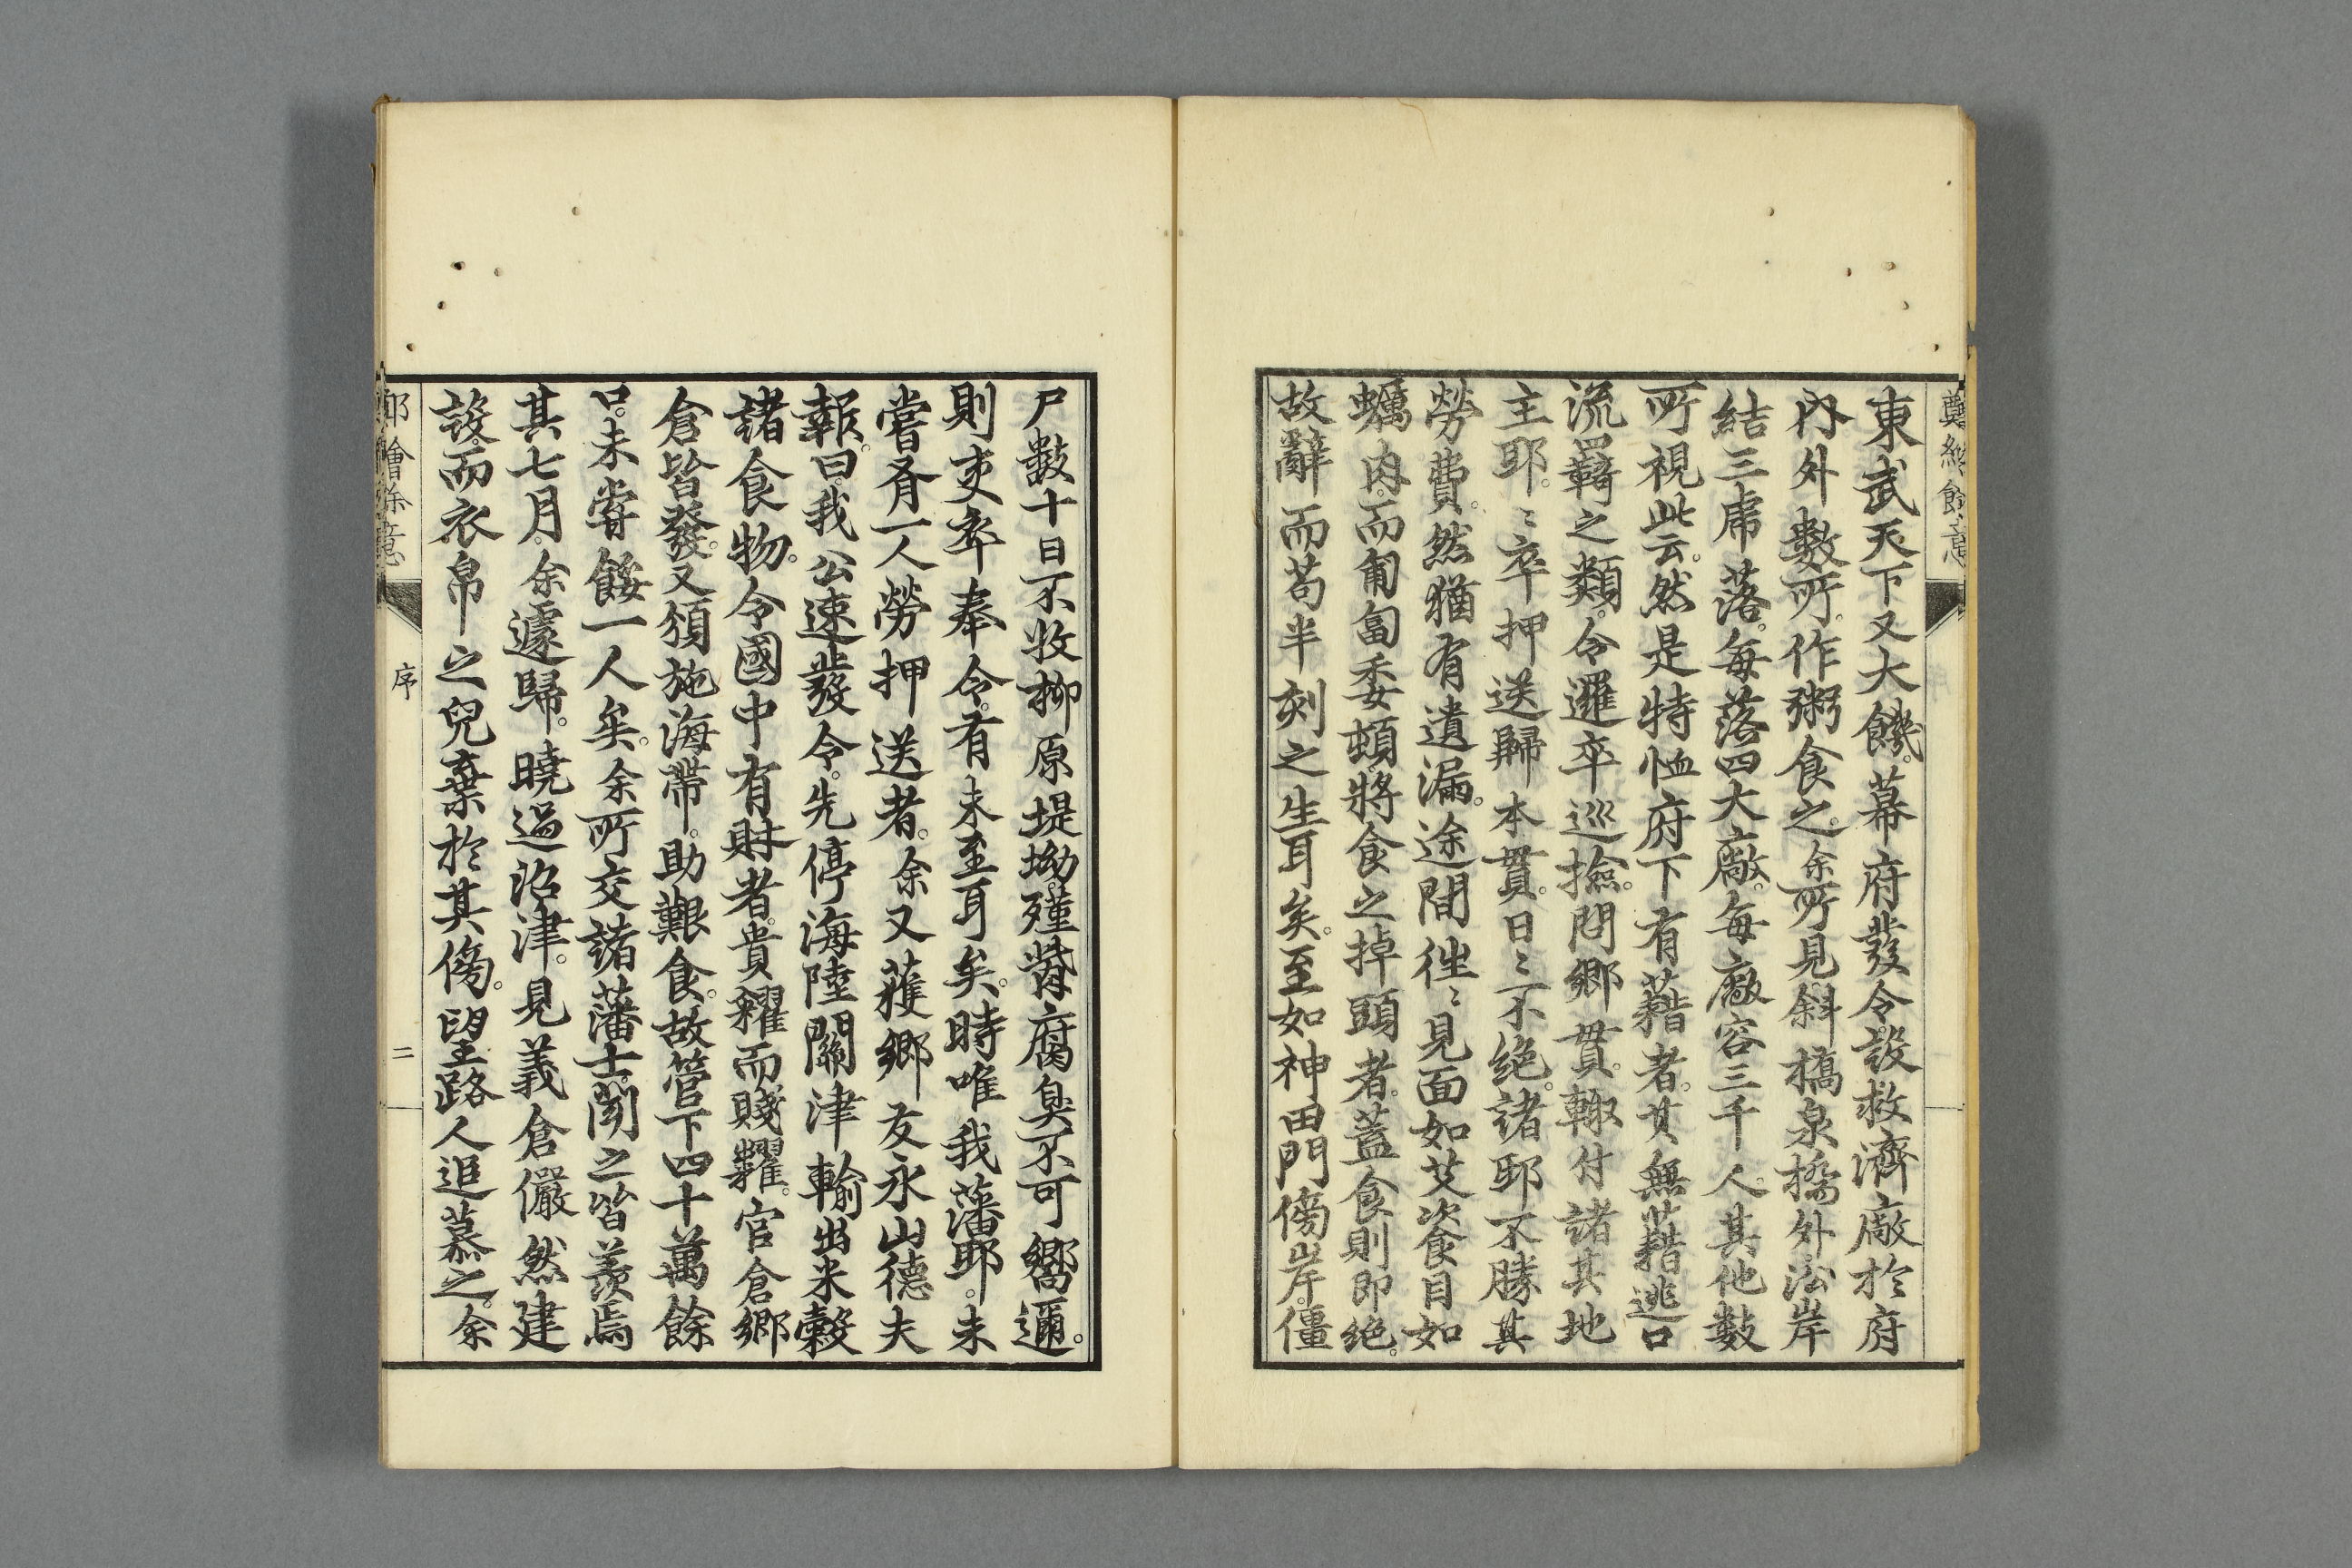 東武天下又大饑。幕府發令。設救濟廠於府
内外數所。作粥食之。余所見。斜橋泉橋外沿岸
結三席落。每落四大廠。每廠容三千人。其他數
所視此云。然是特恤府下有藉者。其無藉逃口
流羇之類。令邏卒巡撿。問鄉貫。輙付諸其地
主耶。〻卒押送歸本貫。日〻不絶。諸耶不勝其
勞費。然猶有遺漏。途間徃〻見面如艾瓷目如
蠣肉。而匍匐委頓。將食之掉頭者。蓋食則即絶。
故辭而苟半刻之生耳矣。至如神田門傍岸。僵
尸數十日不收。柳原堤坳。殣胔腐臭不可嚮邇。
則吏卒奉令。有未至耳矣。時唯我藩耶。未
嘗有一人勞押送者。余又獲鄉友永山德夫
報。曰。我公速發令。先停海陸關津輸出米穀
諸食物。令國中有財者。貴糴而賤糶。官倉鄉
倉皆發。又頒施海帶。助艱食。故管下四十萬餘
口。未嘗餒一人矣。余所交諸藩士。聞之皆羨焉
其七月。余遽歸。曉過沼津。見義倉儼然建
設。而衣帛之兒棄於其傍。望路人追慕之。余
序
二